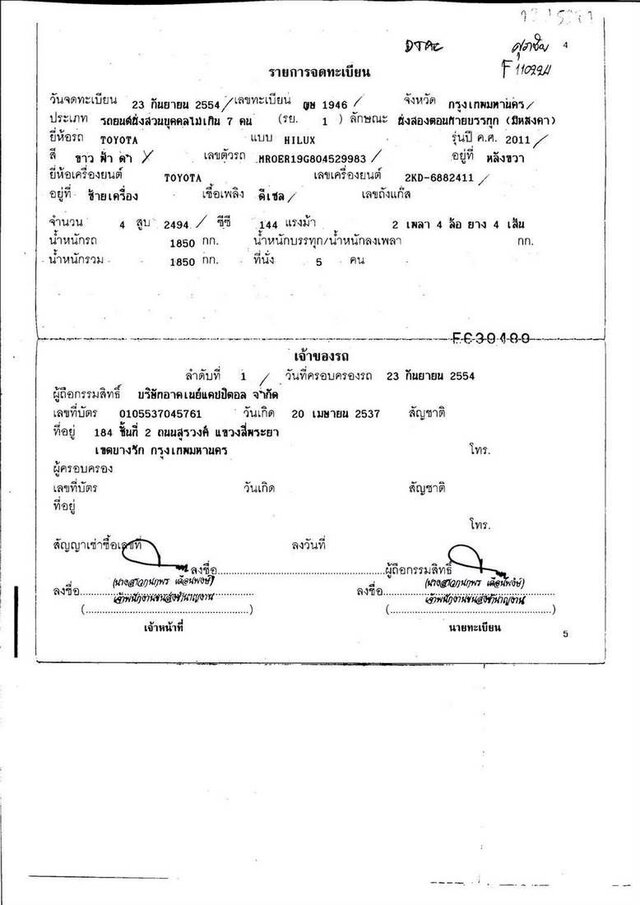 DTAC
4
F 110224
รายการจดทะเบียน
วันจดทะเบียน 23 กันยายน 2554 / เลขทะเบียน ฒฒ 1946 / จังหวัด กรุงเทพมหานคร /
ประเภท รถยนต์นั่งส่วนบุคคลไม่เกิน 7 คน (รย. 1 ) ลักษณะ นั่งสองตอนท้ายบรรทุก (มีหลังคา)
ยี่ห้อรถ TOYOTA แบบ HILUX รุ่นปี ค.ศ. 2011 /
สี ขาว ฟ้า ดำ / เลขตัวรถ MROER19G804529983 / อยู่ที่ หลังขวา
ยี่ห้อเครื่องยนต์ TOYOTA เลขเครื่องยนต์ 2KD-6882411 /
อยู่ที่ ซ้ายเครื่อง เชื้อเพลิง ดีเซล / เลขถังแก๊ส
จำนวน 4 สูบ 2494 / ซีซี 144 แรงม้า 2 เพลา 4 ล้อ ยาง 4 เส้น
น้ำหนักรถ 1850 กก. น้ำหนักบรรทุก/น้ำหนักลงเพลา กก.
น้ำหนักรวม 1850 กก. ที่นั่ง 5 คน
เจ้าของรถ
ลำดับที่ 1 / วันที่ครอบครองรถ 23 กันยายน 2554
ผู้ถือกรรมสิทธิ์ บริษัทอาคเนย์แคปปิตอล จำกัด
เลขที่บัตร 0105537045761 วันเกิด 20 เมษายน 2537 สัญชาติ
ที่อยู่ 184 ชั้นที่ 2 ถนนสุรวงศ์ แขวงสี่พระยา
เขตบางรัก กรุงเทพมหานคร โทร.
ผู้ครอบครอง
เลขที่บัตร วันเกิด สัญชาติ
ที่อยู่
โทร.
สัญญาเช่าซื้อเลขที่ ลงวันที่
ลงชื่อ ผู้ถือกรรมสิทธิ์
ลงชื่อ ลงชื่อ
เจ้าพนักงานขนส่งชำนาญงาน เจ้าพนักงานขนส่งชำนาญงาน
เจ้าหน้าที่ นายทะเบียน
5